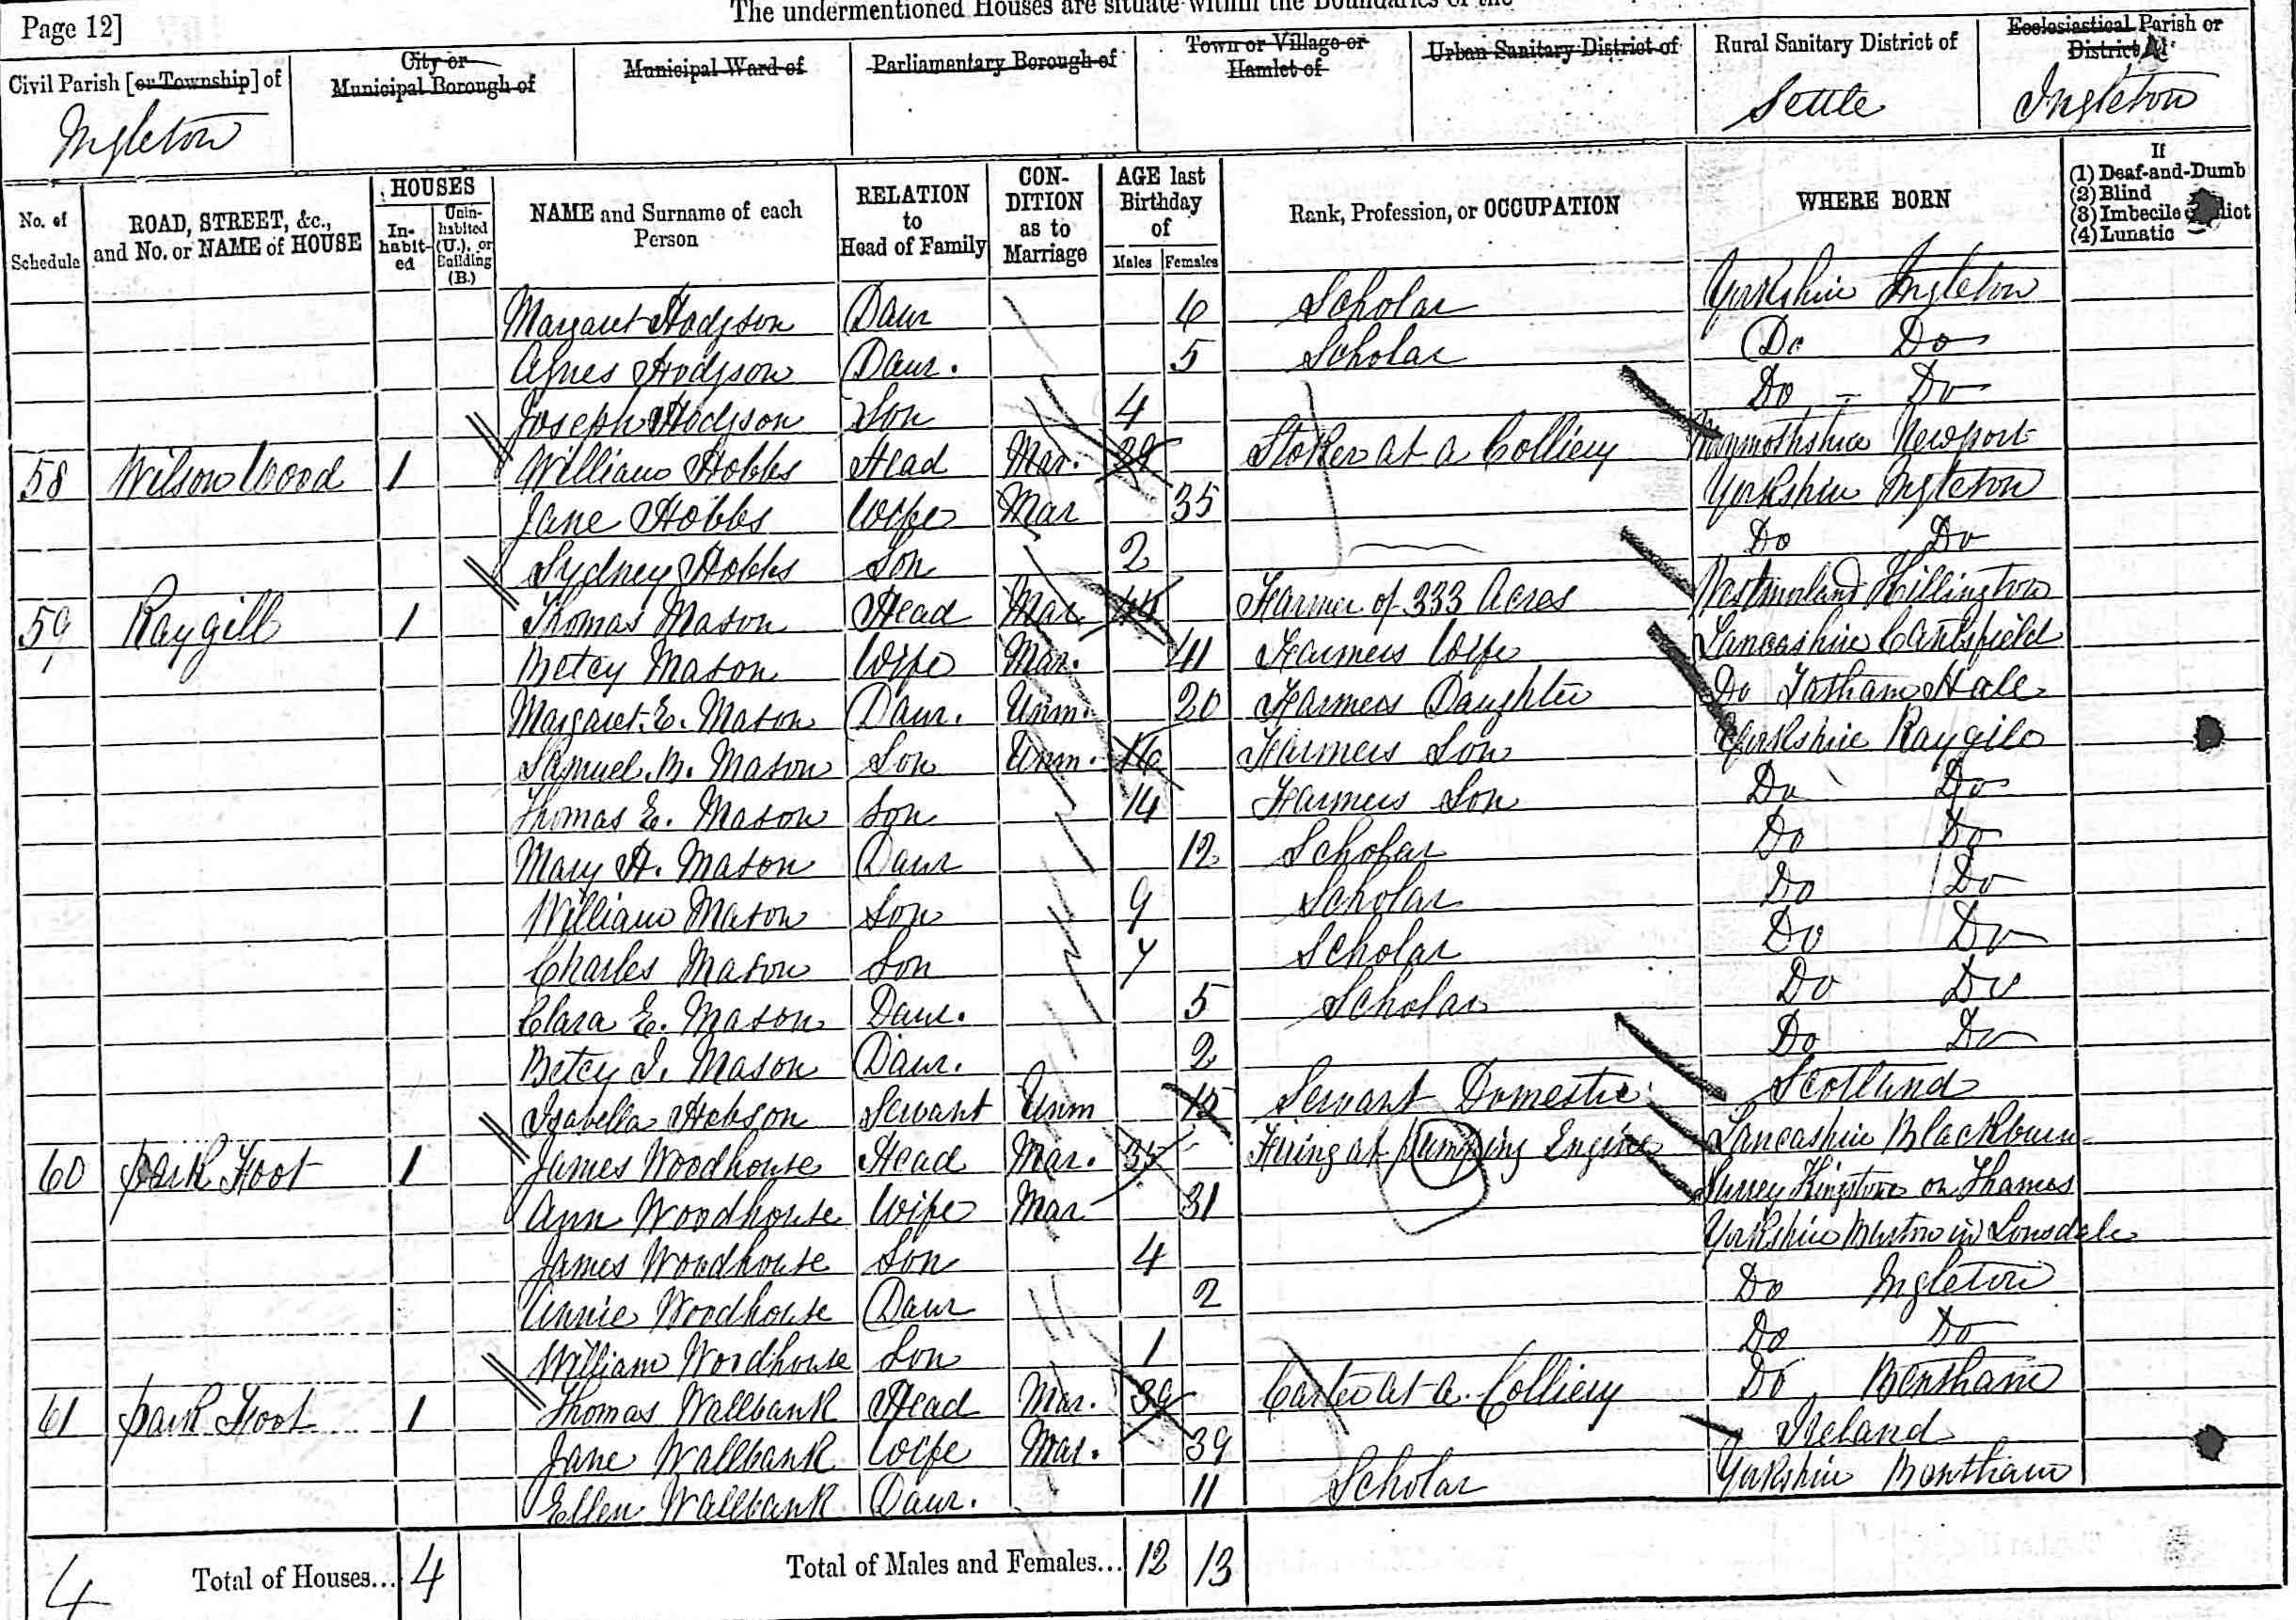 The undermentioned Houses are situate within the Boundaries of the
Page 12]
Civil Parish [or Township] of
City or Municipal Borough of
Municipal Ward of
Parliamentary Borough of
Town or Village or Hamlet of
Urban Sanitary District of
Rural Sanitary District of
Ecclesiastical Parish or District of
Ingleton Settle Ingleton
No. of Schedule
ROAD, STREET, &c., and No. or NAME of HOUSE
HOUSES
In-habit-ed
Unin-habited (U.), or Building (B.)
NAME and Surname of each Person
RELATION to Head of Family
CON-DITION as to Marriage
AGE last Birthday of
Males Females
Rank, Profession, or OCCUPATION
WHERE BORN
If
(1) Deaf-and-Dumb
(2) Blind
(3) Imbecile or Idiot
(4) Lunatic
Margaret Hodgson Daur 6 Scholar Yorkshire Ingleton
Agnes Hodgson Daur. 5 Scholar Do Do
Joseph Hodgson Son 4 Do - Do
58 Wilson Wood 1 William Hobbs Head Mar. Stoker at a Colliery Monmothshire Newport
Jane Hobbs Wife Mar 35 Yorkshire Ingleton
Sydney Hobbs Son 2 Do Do
59 Raygill 1 Thomas Mason Head Mar. 44 Farmer of 333 Acres Westmorland Killington
Betcy Mason Wife Mar. 41 Farmers Wife Lancashire Cantsfield
Margaret. E. Mason Daur. Unm. 20 Farmers Daughter Do Tatham Hale
Samuel. M. Mason Son Unm. 16 Farmers Son Yorkshire Raygill
Thomas E. Mason Son 14 Farmers Son Do Do
Mary A. Mason Daur 12 Scholar Do Do
William Mason Son 9 Scholar Do Do
Charles Mason Son 7 Scholar Do Do
Clara E. Mason Daur. 5 Scholar Do Do
Betcy I. Mason Daur. 2 Do Do
Isabella Hobson Servant Unm 15 Servant Domestic Scotland
60 park Foot 1 James Woodhouse Head Mar. 35 Firing at pumping Engine Lancashire Blackburn
Ann Woodhouse Wife Mar 31 Surrey Kingstone on Thames
James Woodhouse Son 4 Yorkshire Burton in Lonsdale
Annie Woodhouse Daur 2 Do Ingleton
William Woodhouse Son 1 Do Do
61 park Foot 1 Thomas Wallbank Head Mar. 39 Carter at a Colliery Do Bentham
Jane Wallbank Wife Mar. 39 Ireland
Ellen Wallbank Daur. 11 Scholar Yorkshire Bentham
4 Total of Houses... 4 Total of Males and Females... 12 13